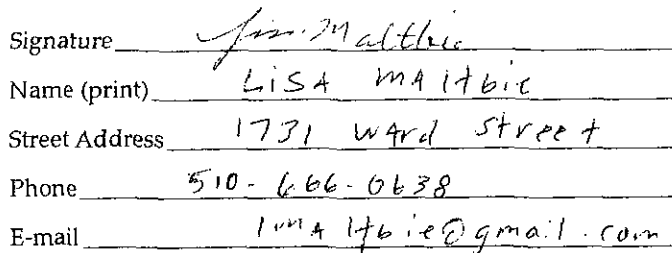 Signature Lisa Maltbie
Name (print) LiSA MAltbie
Street Address 1731 WArd Street
Phone 510-666-0638
E-mail lmAltbie@gmail.com